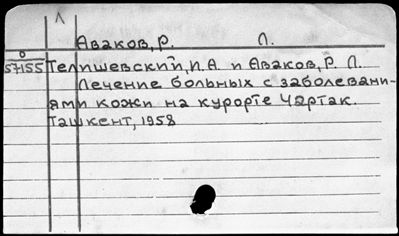 Л
Аваков, Р. Л.
0
57155 Телишевский, П.А и Аваков, Р. Л.
Лечение больных с заболевани-
ями кожи на курорте Чартак.
Ташкент, 1958